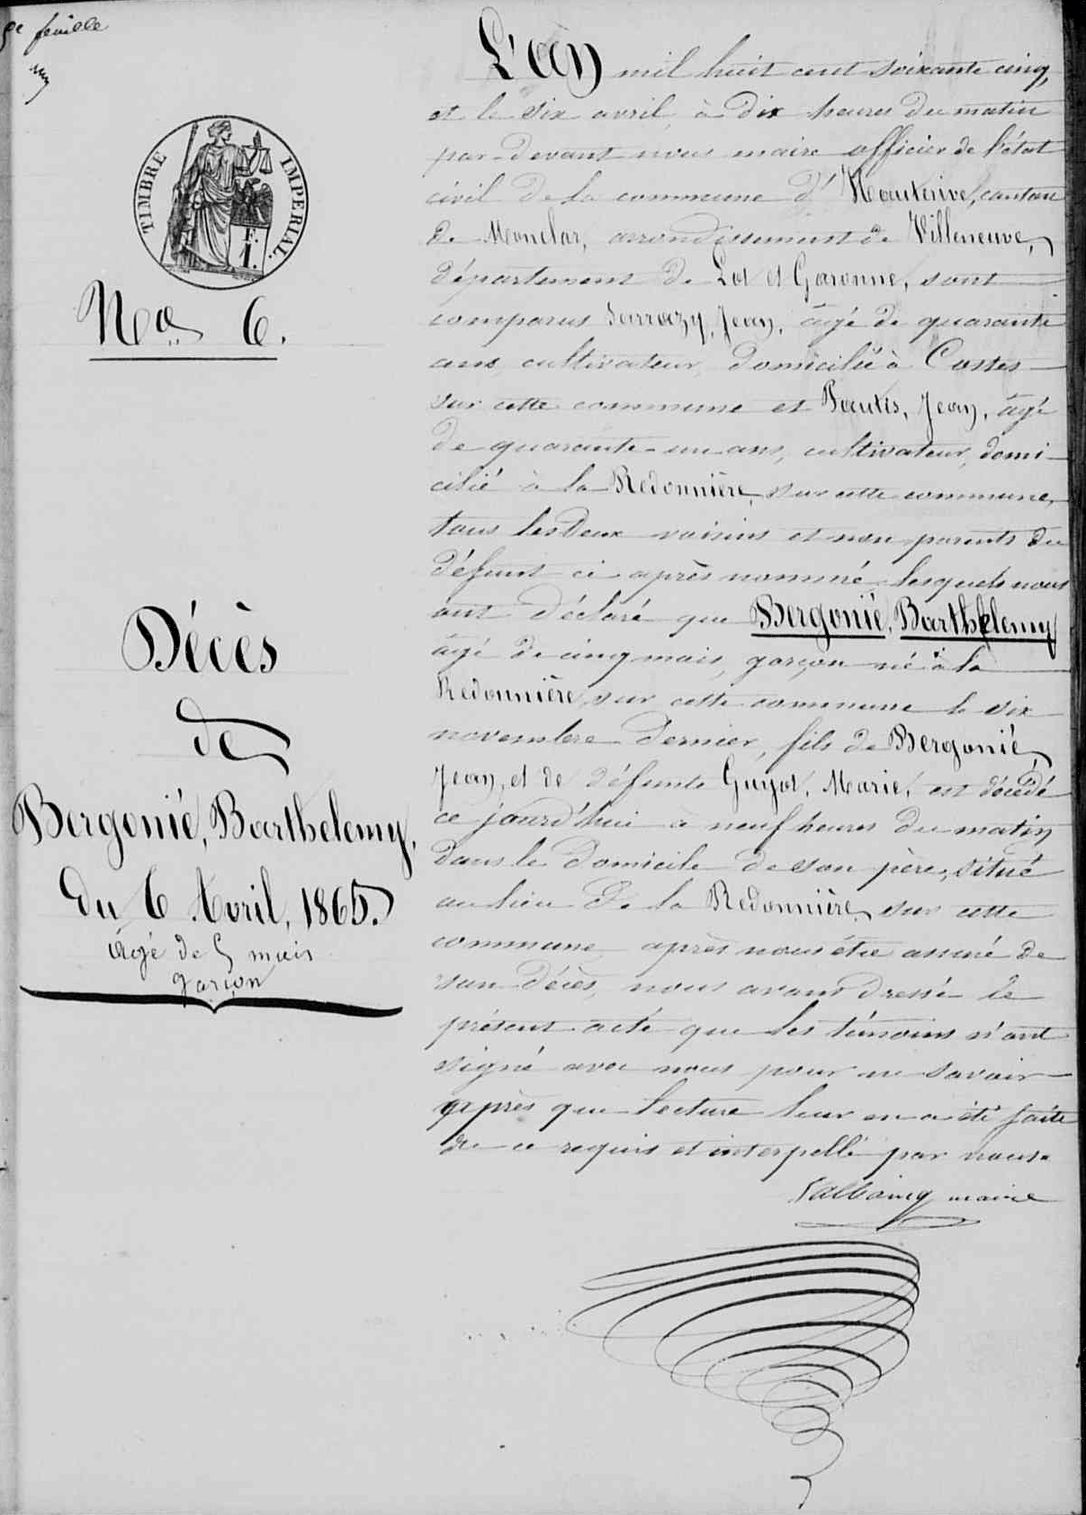 feuille
TIMBRE IMPERIAL.
F.
1.
No 6.
Décès
de
Bergonié, Barthelemy,
du 6 Avril, 1865.
âgé de 5 mois
garçon
L'an mil huit cent soixante cinq,
et le six avril, à dix heures du matin
par-devant nous maire officier de l'état
civil de la commune d'Hauterive, canton
de Monclar, arrondissement de Villeneuve,
département de Lot et Garonne, sont
comparus Sarrazy, Jean, âgé de quarante
ans, cultivateur, domicilié à Costes
sur cette commune et Jean, âgé
de quarante-un ans, cultivateur, domi-
cilié à la Redonnière, sur cette commune,
tous les deux voisins et non parents du
défunt ci après nommé lesquels nous
ont déclaré que Bergonié, Barthelemy
âgé de cinq mois, garçon né à la
Redonnière, sur cette commune le six
novembre dernier, fils de Bergonié,
Jean, et de défunte Guyot, Marie, est décédé
ce jourd'hui à neuf heures du matin
dans le domicile de son père, situé
au lieu de la Redonnière, sur cette
commune, après nous être assuré de
son décès, nous avons dressé le
présent acte que les témoins n'ont
signé avec nous pour ne savoir
après que lecture leur en a été faite
de ce requis et interpellé par nous.
maire